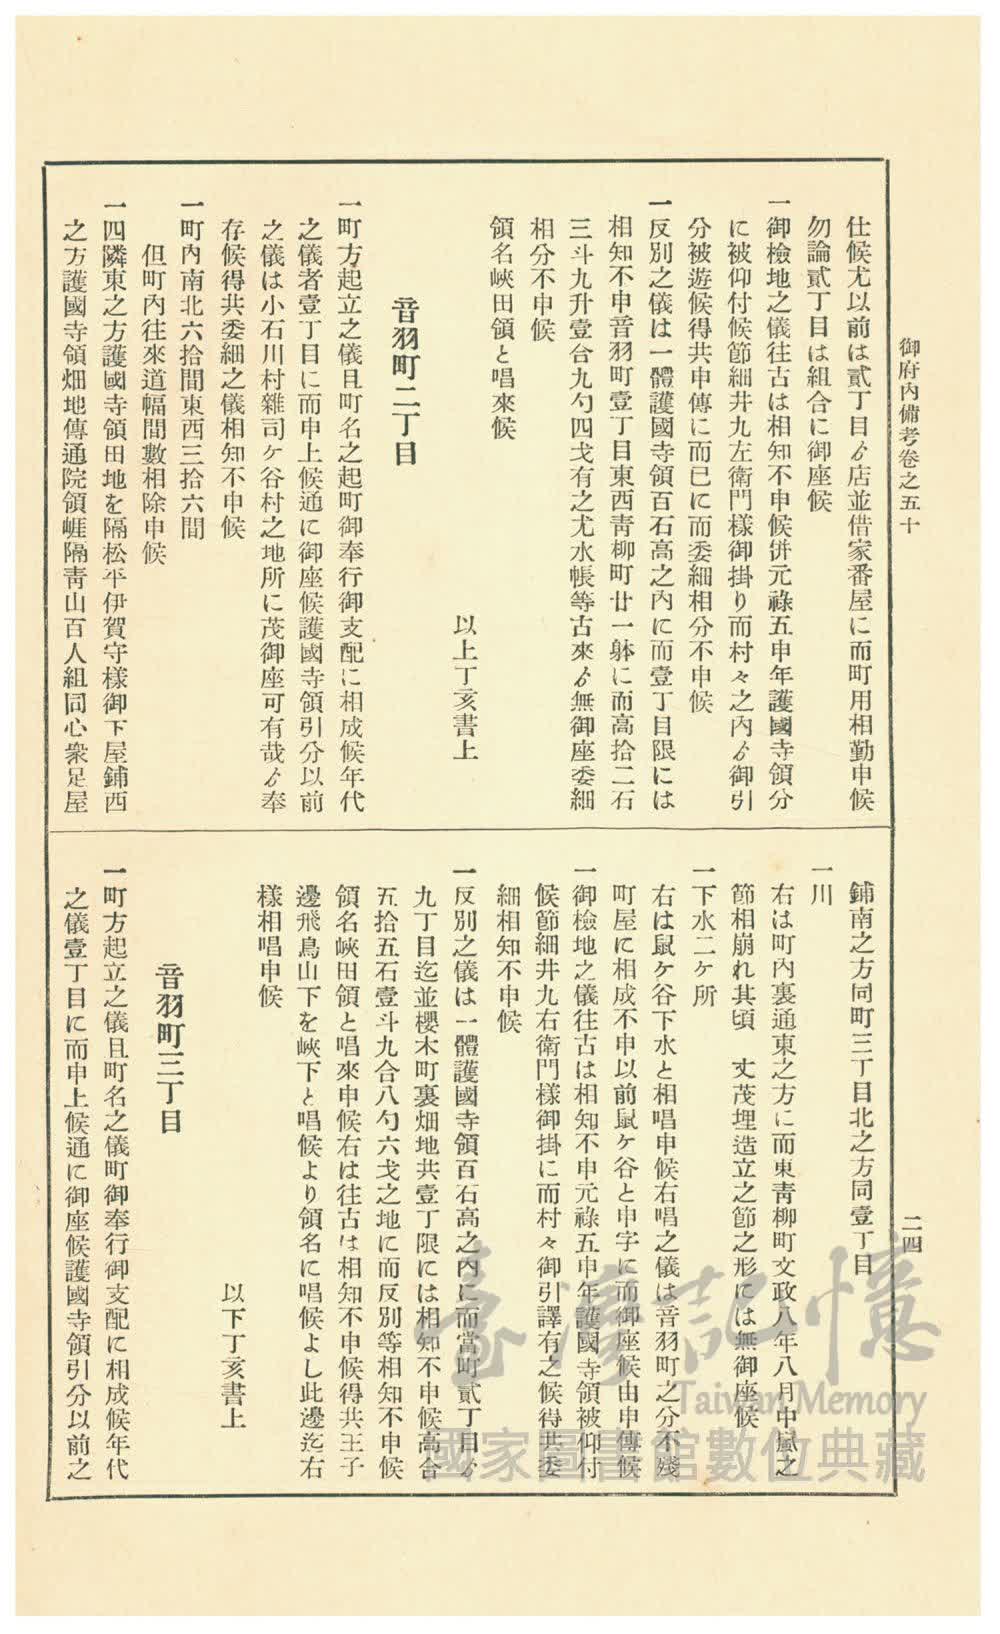 御府內備考卷之五十
二四
仕候尤以前は貳丁目ゟ店並借家番屋に而町用相勤申候
勿論貳丁目は組合に御座候
一御檢地之儀往古は相知不申候併元祿五申年護國寺領分
に被仰付候節細井九左衛門樣御掛り而村々之內ゟ御引
分被遊候得共申傳に而已に而委細相分不申候
一反別之儀は一體護國寺領百石高之內に而壹丁目限には
相知不申音羽町壹丁目東西靑柳町廿一躰に而高拾二石
三斗九升壹合九勺四戈有之尤水帳等古來ゟ無御座委細
相分不申候
領名峽田領と唱來候
以上丁亥書上
音羽町二丁目
一町方起立之儀且町名之起町御奉行御支配に相成候年代
之儀者壹丁目に而申上候通に御座候護國寺領引分以前
之儀は小石川村雜司ケ谷村之地所に茂御座可有哉ゟ奉
存候得共委細之儀相知不申候
一町內南北六拾間東西三拾六間
但町內往來道幅間數相除申候
一四隣東之方護國寺領田地を隔松平伊賀守樣御下屋鋪西
之方護國寺領畑地傳通院領崕隔靑山百人組同心衆足屋
鋪南之方同町三丁目北之方同壹丁目
一川
右は町內裏通東之方に而東靑柳町文政八年八月中嵐之
節相崩れ其頃　丈茂埋造立之節之形には無御座候
一下水二ケ所
右は鼠ケ谷下水と相唱申候右唱之儀は音羽町之分不殘
町屋に相成不申以前鼠ケ谷と申字に而御座候由申傳候
一御檢地之儀往古は相知不申元祿五申年護國寺領被仰付
候節細井九右衛門樣御掛に而村々御引譯有之候得共委
細相知不申候
一反別之儀は一體護國寺領百石高之內に而當町貳丁目ゟ
九丁目迄並櫻木町裏畑地共壹丁限には相知不申候高合
五拾五石壹斗九合八勺六戈之地に而反別等相知不申候
領名峽田領と唱來申候右は往古は相知不申候得共王子
邊飛鳥山下を峽下と唱候より領名に唱候よし此邊迄右
樣相唱申候
以下丁亥書上
音羽町三丁目
一町方起立之儀且町名之儀町御奉行御支配に相成候年代
之儀壹丁目に而申上候通に御座候護國寺領引分以前之
臺灣記憶
Taiwan Memory
國家圖書館數位典藏